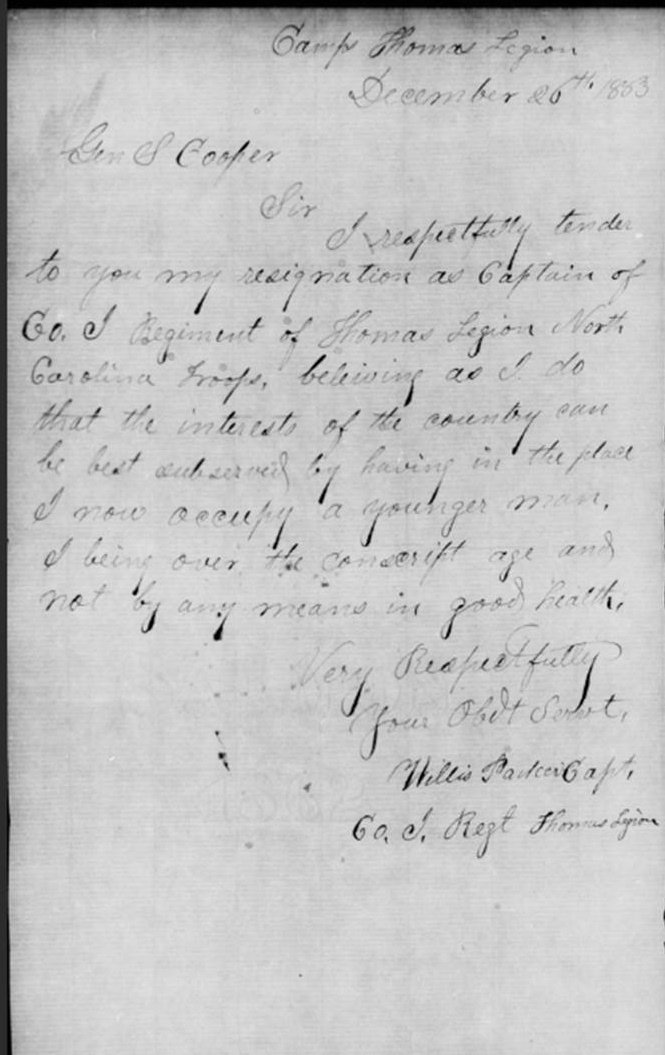 Camp Thomas Legion
December 26th 1863
Gen S Cooper
Sir
I respectfully tender
to you my resignation as Captain of
Co. I Regiment of Thomas Legion North
Carolina Troops, beleiving as I do
that the interests of the country can
be best subserved by having in the place
I now occupy a younger man,
I being over the conscript age and
not by any means in good health,
Very Respectfully
Your Obdt Servt,
Willis Parker Capt,
Co. I. Regt Thomas Legion